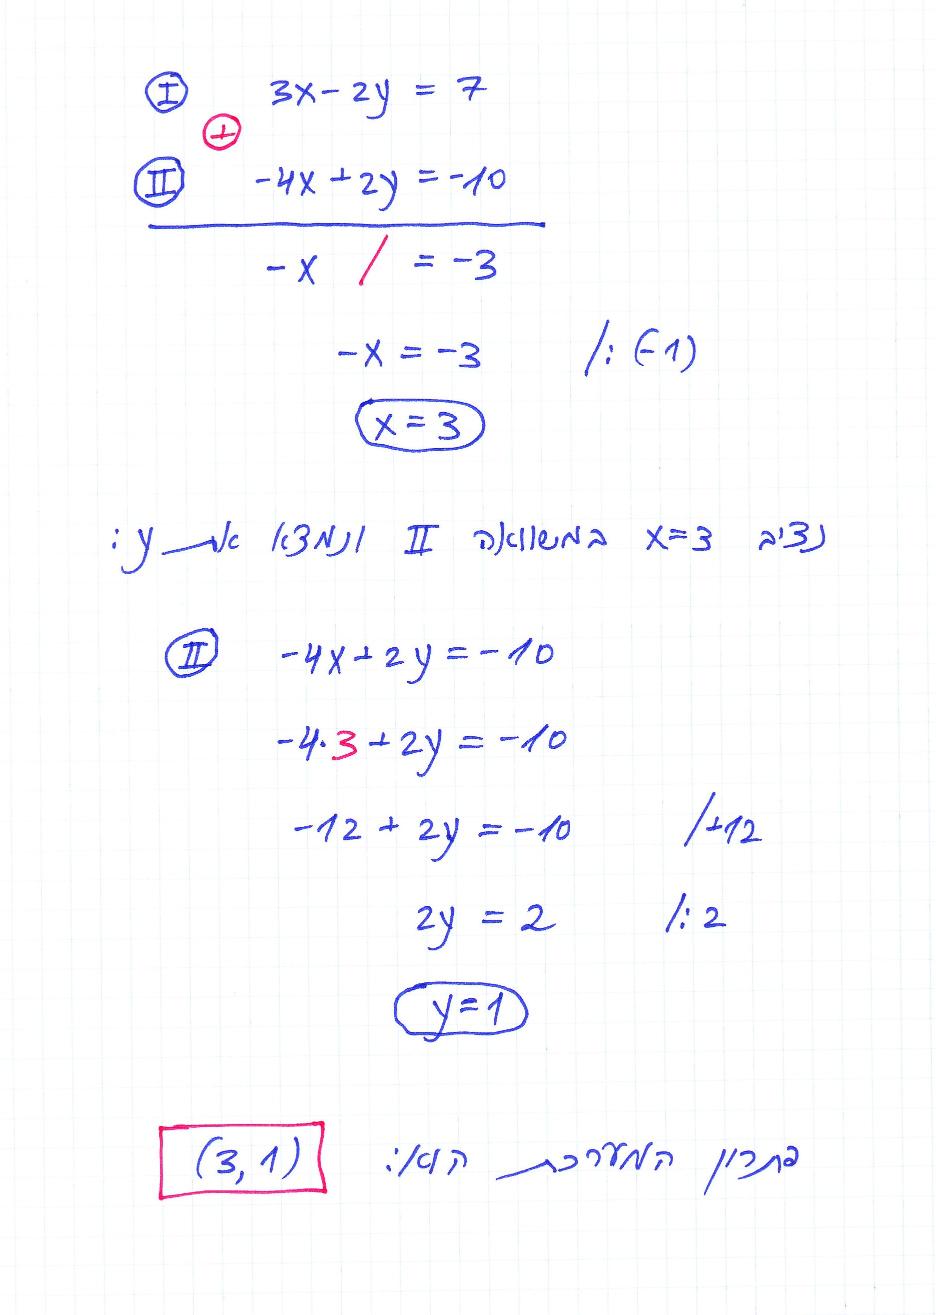 I 3x-2y = 7
+
II -4x+2y=-10
-x / = -3
-x = -3 /:(-1)
x=3
נציב x=3 במשוואה II ונמצא את y:
II -4x+2y=-10
-4·3+2y=-10
-12+2y=-10 /+12
2y=2 /:2
y=1
פתרון המערכת הוא: (3,1)